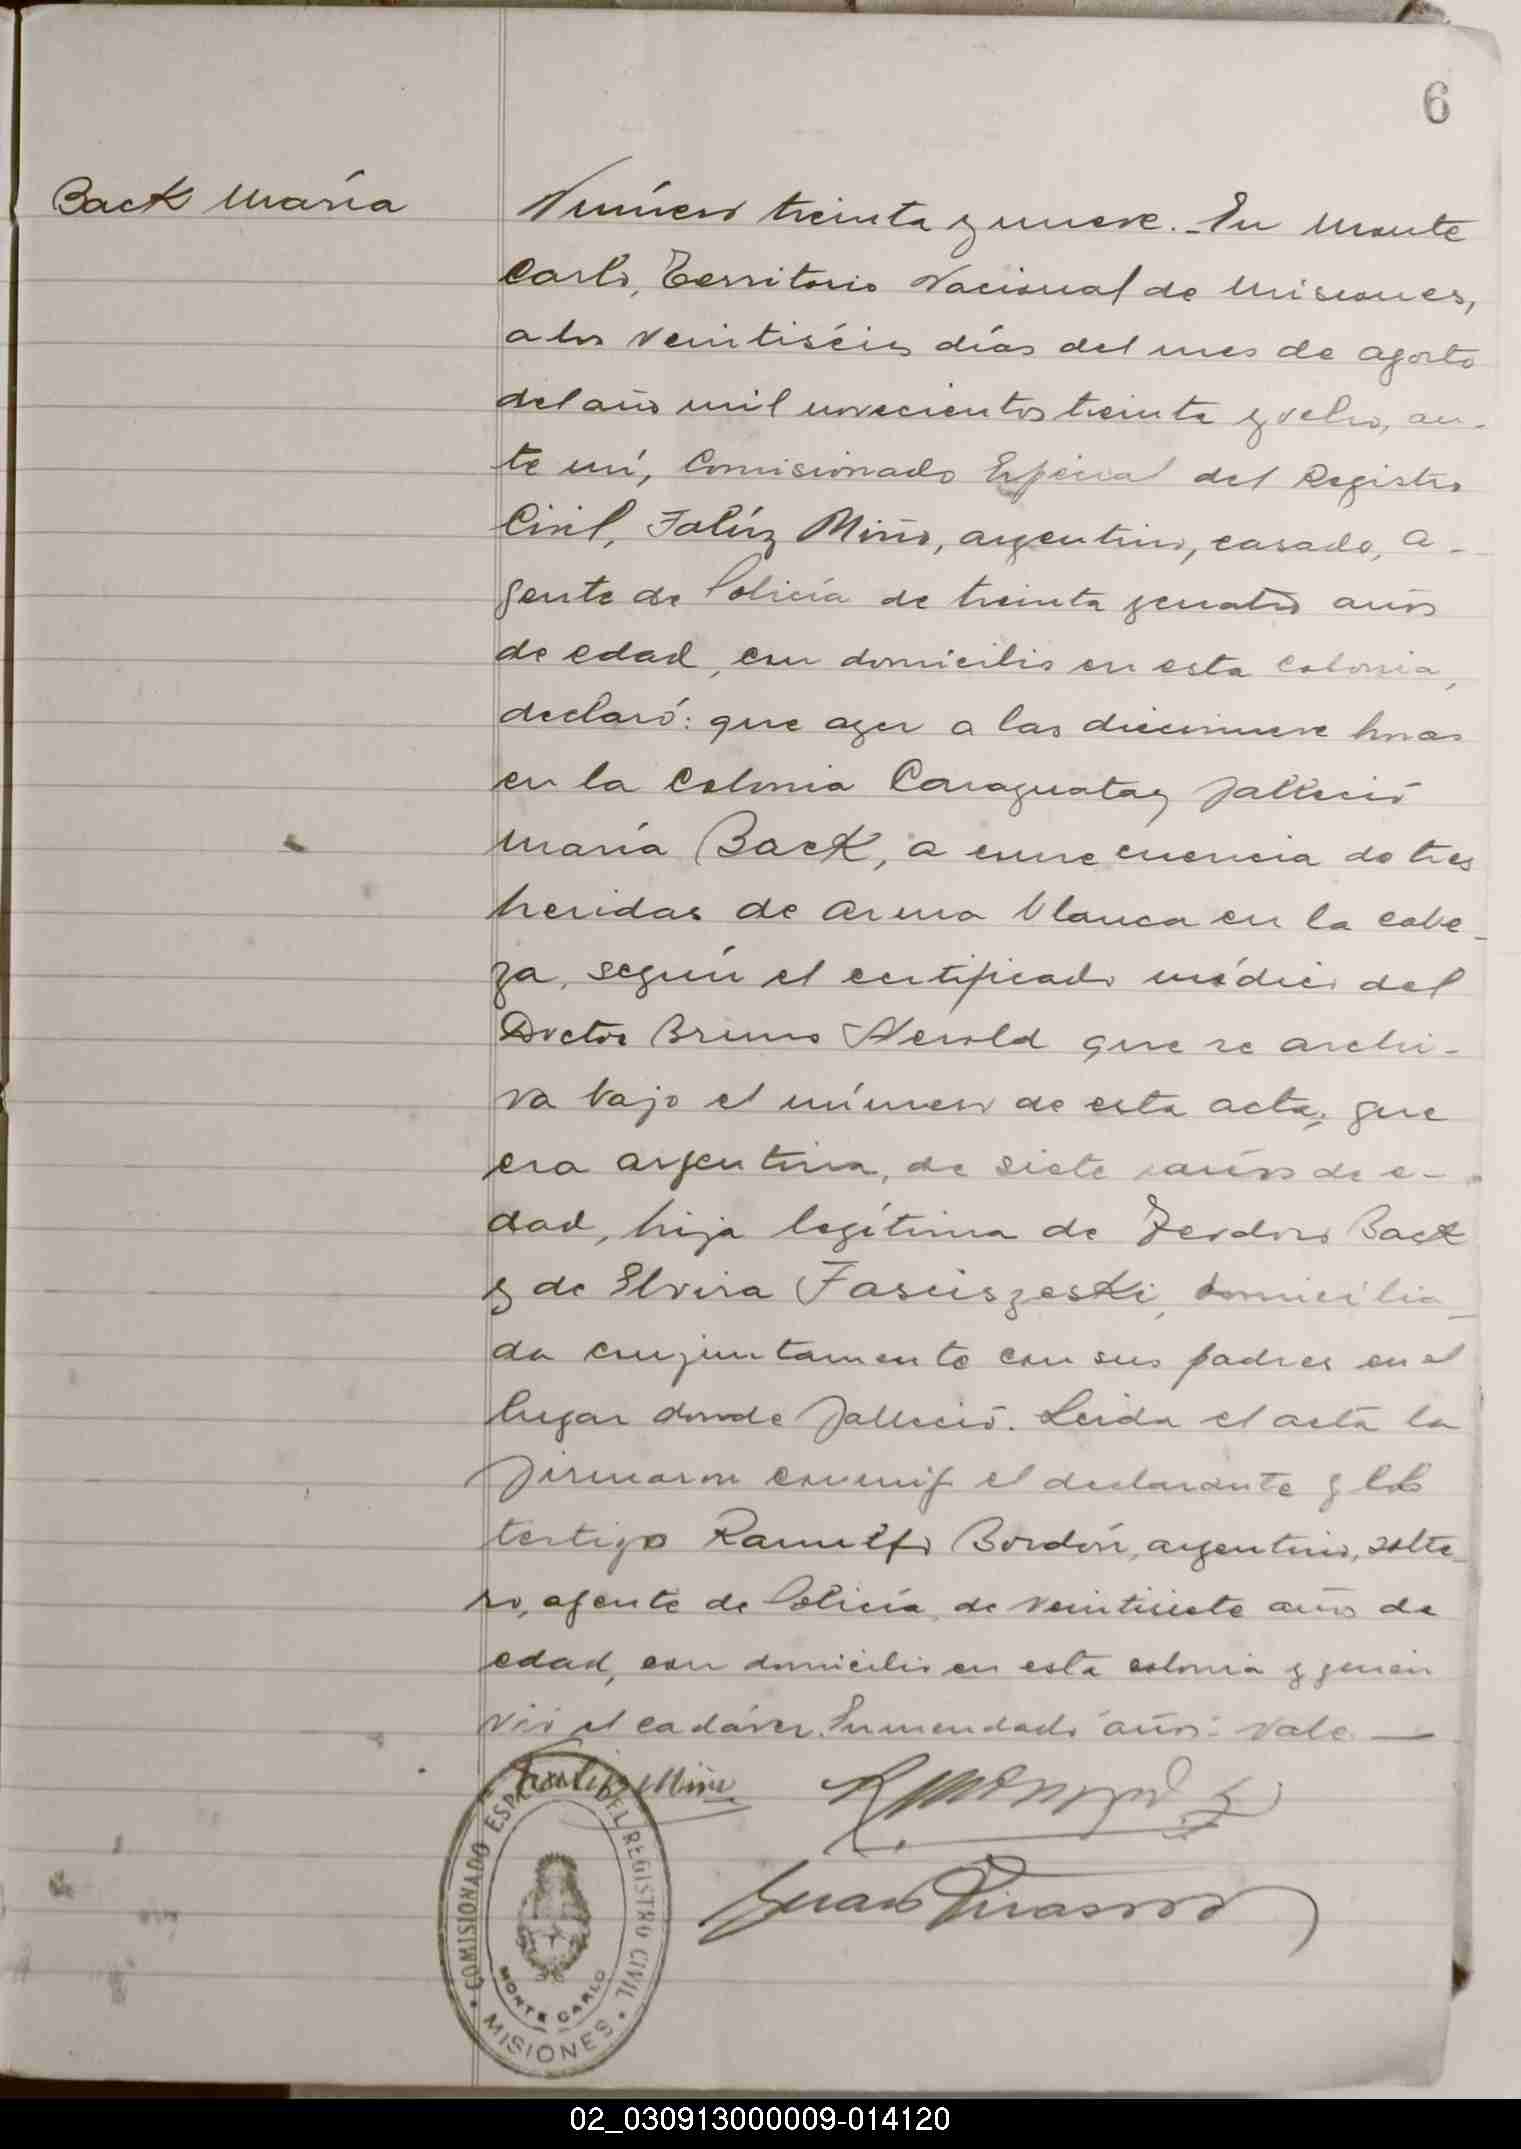 6
Back María
Número treinta y nueve.- En Monte
Carlo, Territorio Nacional de Misiones,
a los veintiséis días del mes de agosto
del año mil novecientos treinta y ocho, an-
te mí, Comisionado Especial del Registro
Civil, Miño, argentino, casado, a-
gente de Policía de treinta y cuatro años
de edad, con domicilio en esta colonia,
declaró: que ayer a las diecinueve horas
en la Colonia Caraguatay falleció
María Back, a consecuencia de tres
heridas de arma blanca en la cabe-
za, según el certificado médico del
Doctor Bruno Herold que se archi-
va bajo el número de esta acta; que
era argentina, de siete años de e-
dad, hija legítima de Teodoro Back
y de Elvira Fasciszeski, domicilia-
da conjuntamente con sus padres en el
lugar donde falleció. Leida el acta la
firmaron conmigo el declarante y los
testigo Ranulfo Bordón, argentino, solte-
ro, agente de Policía, de veintisiete años de
edad, con domicilio en esta colonia y quien
vió el cadáver. Enmendado "años": Vale.—
Miño
COMISIONADO ESPECIAL DEL REGISTRO CIVIL
MONTE CARLO
MISIONES
02_030913000009-014120